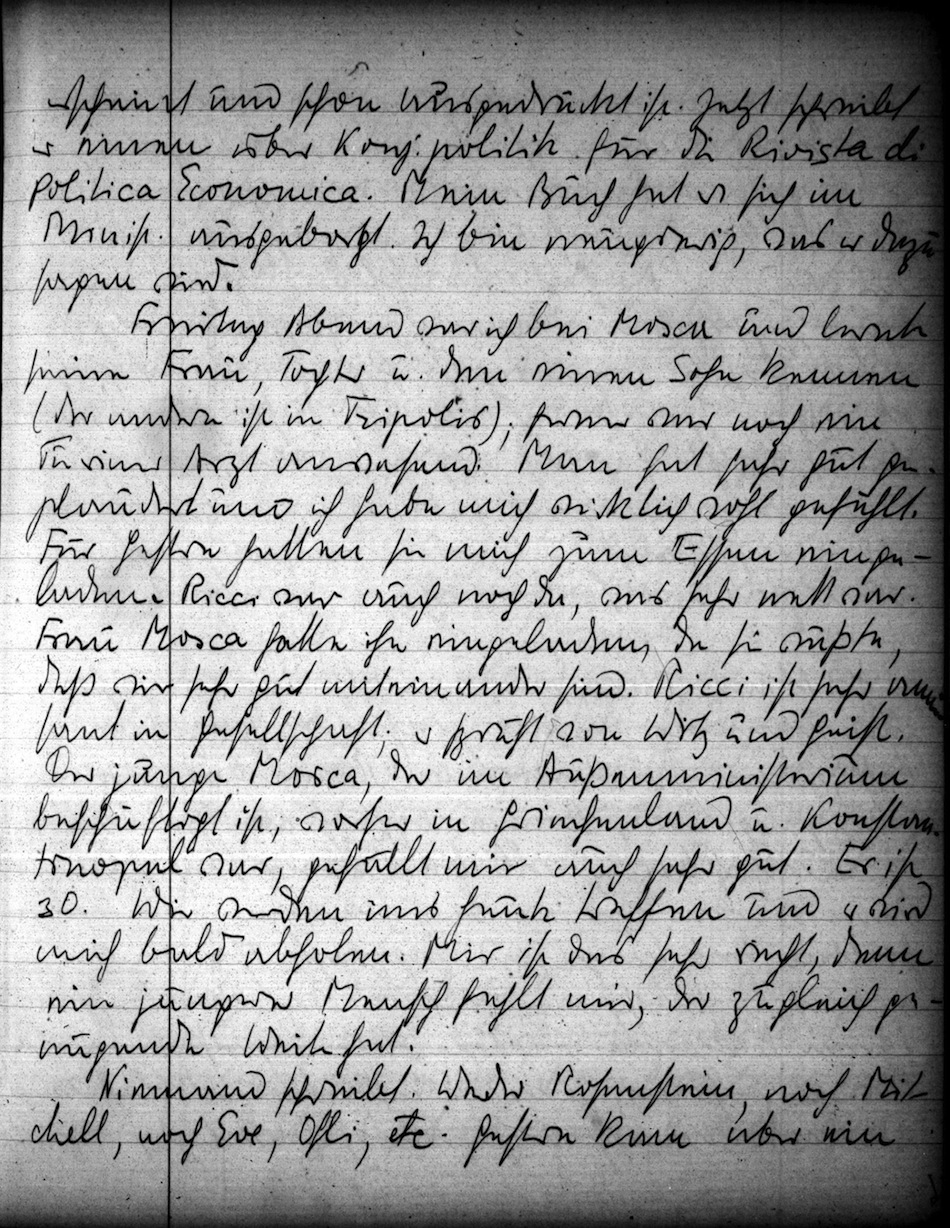 erscheint und schon ausgedruckt ist. Jetzt schreibt
er einen über Konj.politik für die Rivista di
Politica Economica. Mein Buch hat er sich im
Minist. ausgeborgt. Ich bin neugierig, was er dazu
sagen wird.
Freitag Abend war ich bei Mosca und lernte
seine Frau, Tochter u. den einen Sohn kennen
(der andere ist in Tripolis); ferner war noch ein
Turiner Arzt anwesend. Man hat sehr gut ge-
plaudert und ich habe mich wirklich wohl gefühlt.
Für gestern hatten sie mich zum Essen einge-
laden. Ricci war auch noch da, was sehr nett war.
Frau Mosca hatte ihn eingeladen, da sie wußte,
daß wir sehr gut miteinander sind. Ricci ist sehr amü
sant in Gesellschaft; er sprüht von Witz und Geist.
Der junge Mosca, der im Außenministerium
beschäftigt ist, vorher in Griechenland u. Konstan-
tinopel war, gefällt mir auch sehr gut. Er ist
30. Wir werden uns heute treffen und er wird
mich bald abholen. Mir ist das sehr recht, denn
ein jüngerer Mensch fehlt mir, der zugleich ge-
nügende Weite hat.
Niemand schreibt. Weder Rosenstein, noch Mit-
chell, noch Eve, Olli, etc. Gestern kam über ein